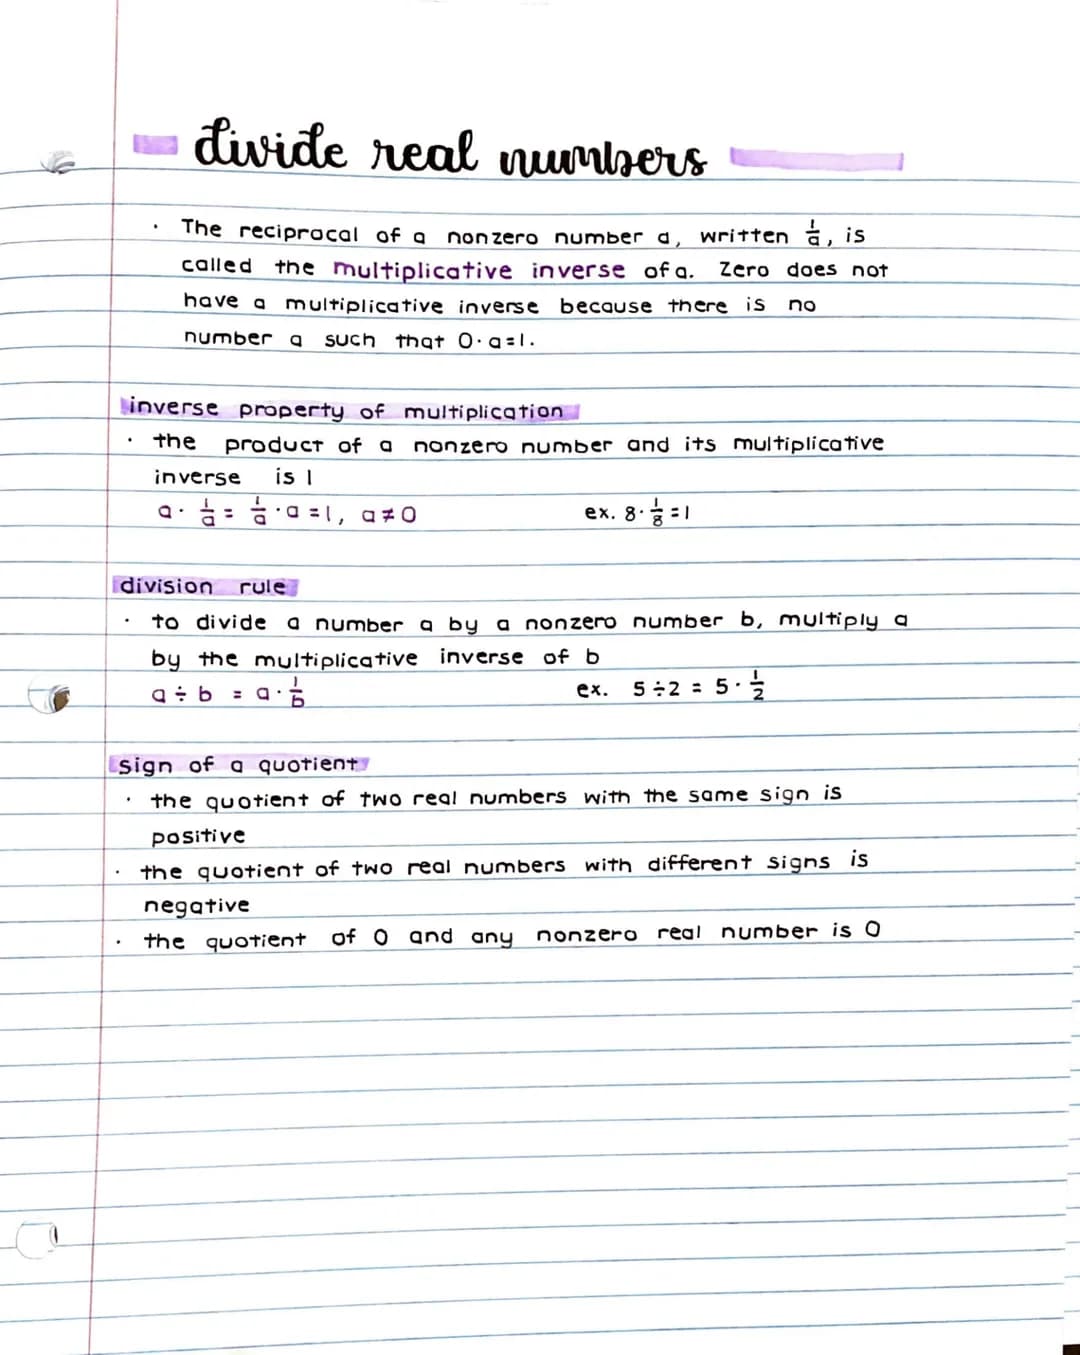 divide real numbers
· The reciprocal of a nonzero number a, written 1/a, is
called the multiplicative inverse of a. Zero does not
have a multiplicative inverse because there is no
number a such that 0·a=1.
inverse property of multiplication
· the product of a nonzero number and its multiplicative
inverse is 1
a · 1/a = 1/a · a = 1, a≠0 ex. 8 · 1/8 = 1
division rule
· to divide a number a by a nonzero number b, multiply a
by the multiplicative inverse of b
a ÷ b = a · 1/b ex. 5÷2 = 5 · 1/2
sign of a quotient
· the quotient of two real numbers with the same sign is
positive
· the quotient of two real numbers with different signs is
negative
· the quotient of 0 and any nonzero real number is 0